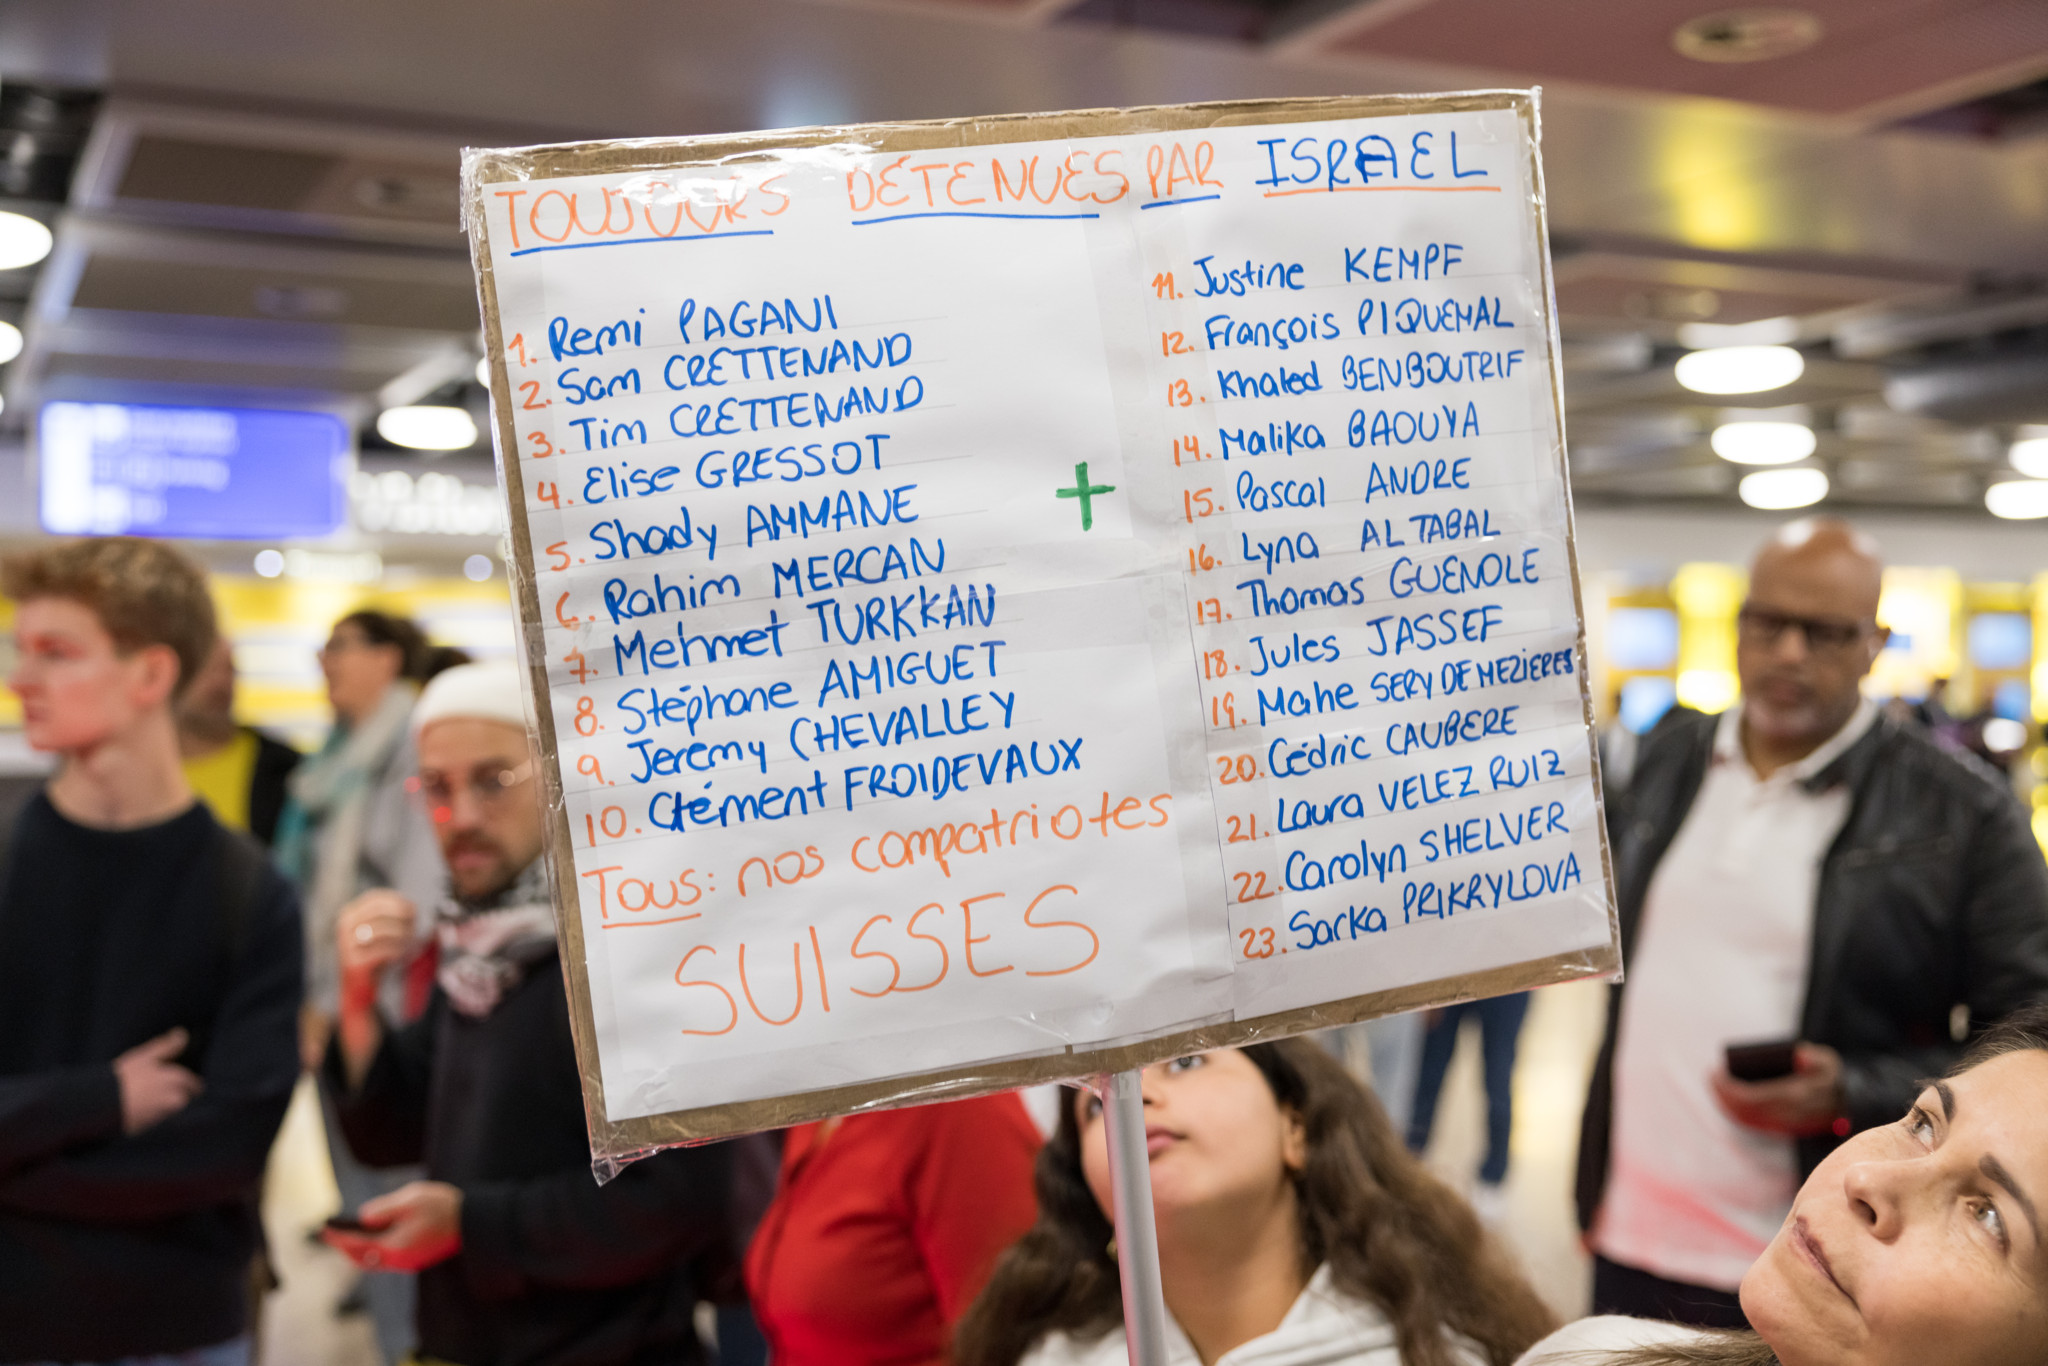 TOUJOURS DÉTENUES PAR ISRAEL
1. Remi PAGANI
2. Sam CRETTENAND
3. Tim CRETTENAND
4. Elise GRESSOT
5. Shady AMMANE
6. Rahim MERCAN
7. Mehmet TURKKAN
8. Stéphane AMIGUET
9. Jeremy CHEVALLEY
10. Clément FROIDEVAUX
Tous: nos compatriotes
SUISSES
+
11. Justine KEMPF
12. François PIQUEMAL
13. Khaled BENBOUTRIF
14. Malika BAOUYA
15. Pascal ANDRE
16. Lyna AL TABAL
17. Thomas GUENOLE
18. Jules JASSEF
19. Mahe SERY DE MEZIERES
20. Cédric CAUBERE
21. Laura VELEZ RUIZ
22. Carolyn SHELVER
23. Sarka PRIKRYLOVA